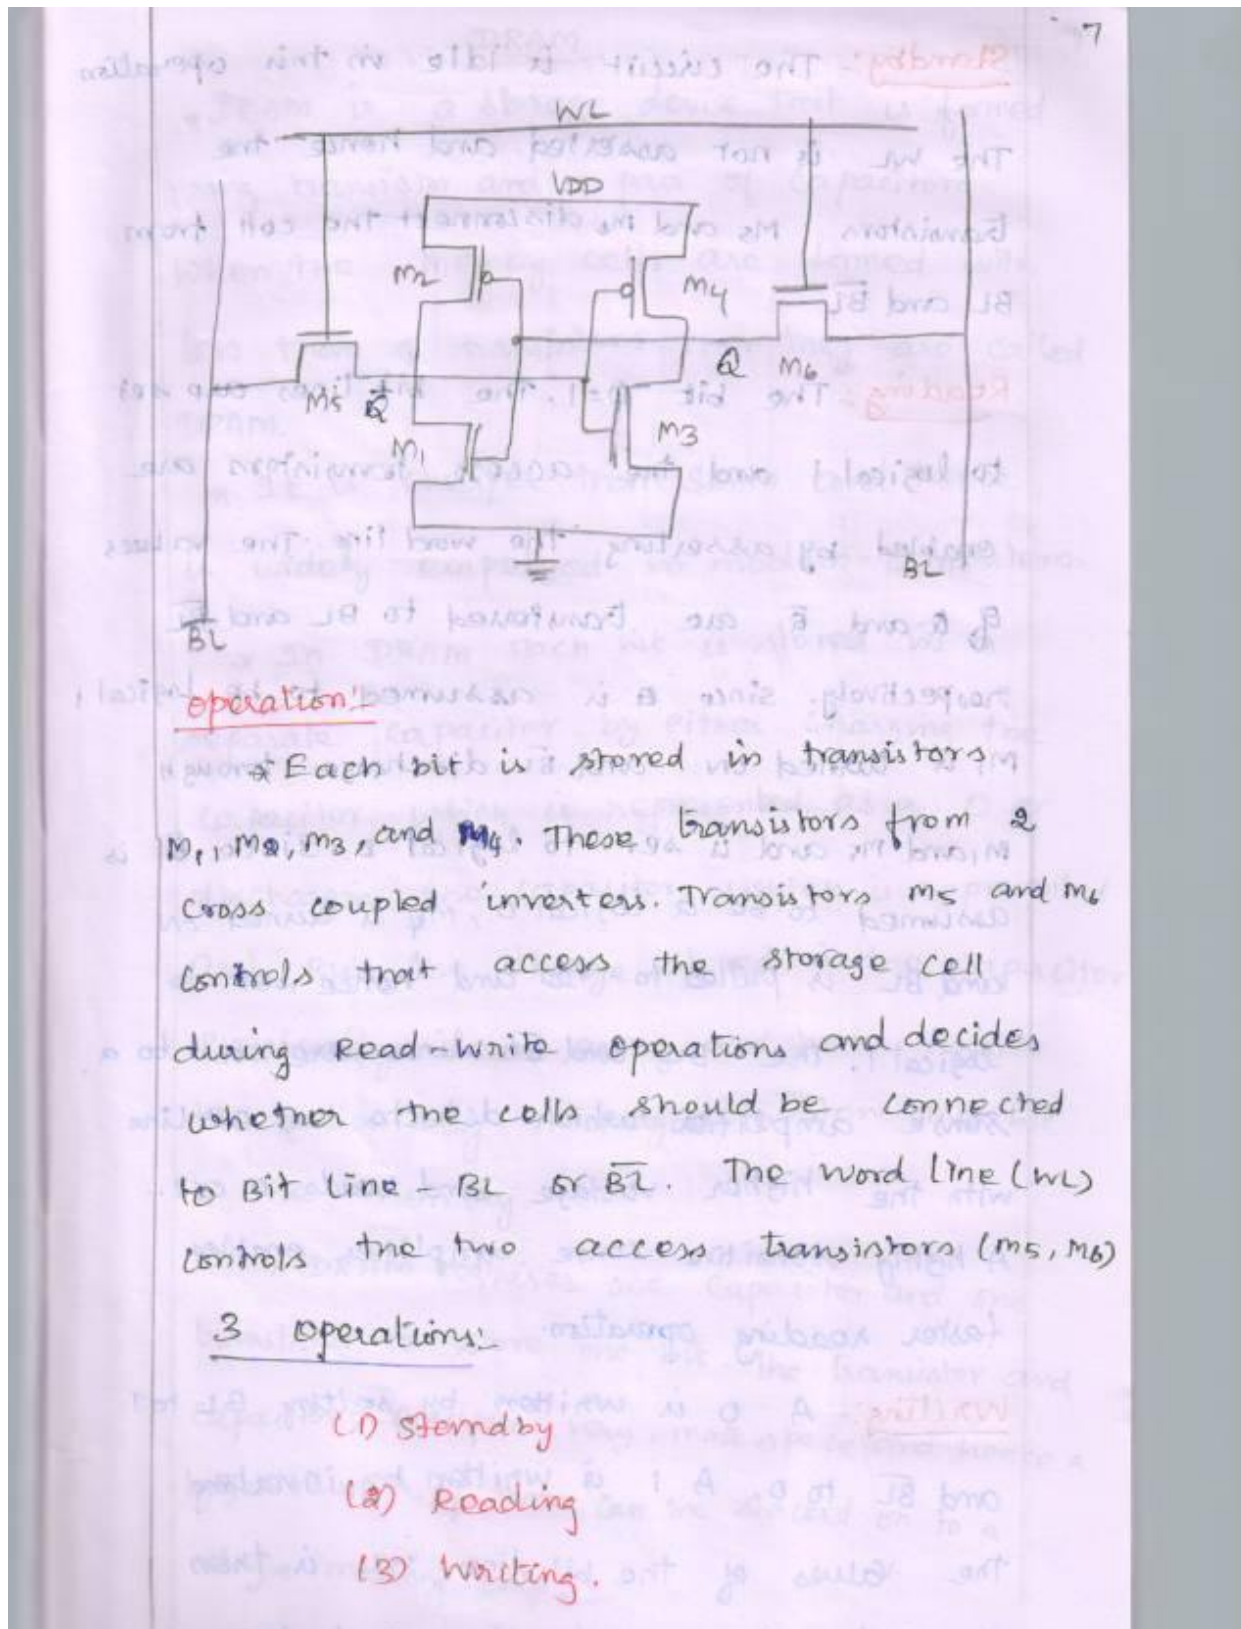 7
WL
VDD
M2
M4
M5
Q̅
Q
M6
M1
M3
BL
B̅L̅
operation:-
* Each bit is stored in transistors
M1, M2, M3, and M4. These transistors from 2
cross coupled inverters. Transistors M5 and M6
controls that access the storage cell
during Read-write operations and decides
whether the cells should be connected
to Bit Line - BL or B̅L̅. The word line (WL)
controls the two access transistors (M5, M6)
3 operations:-
(1) Standby
(2) Reading
(3) Writing.